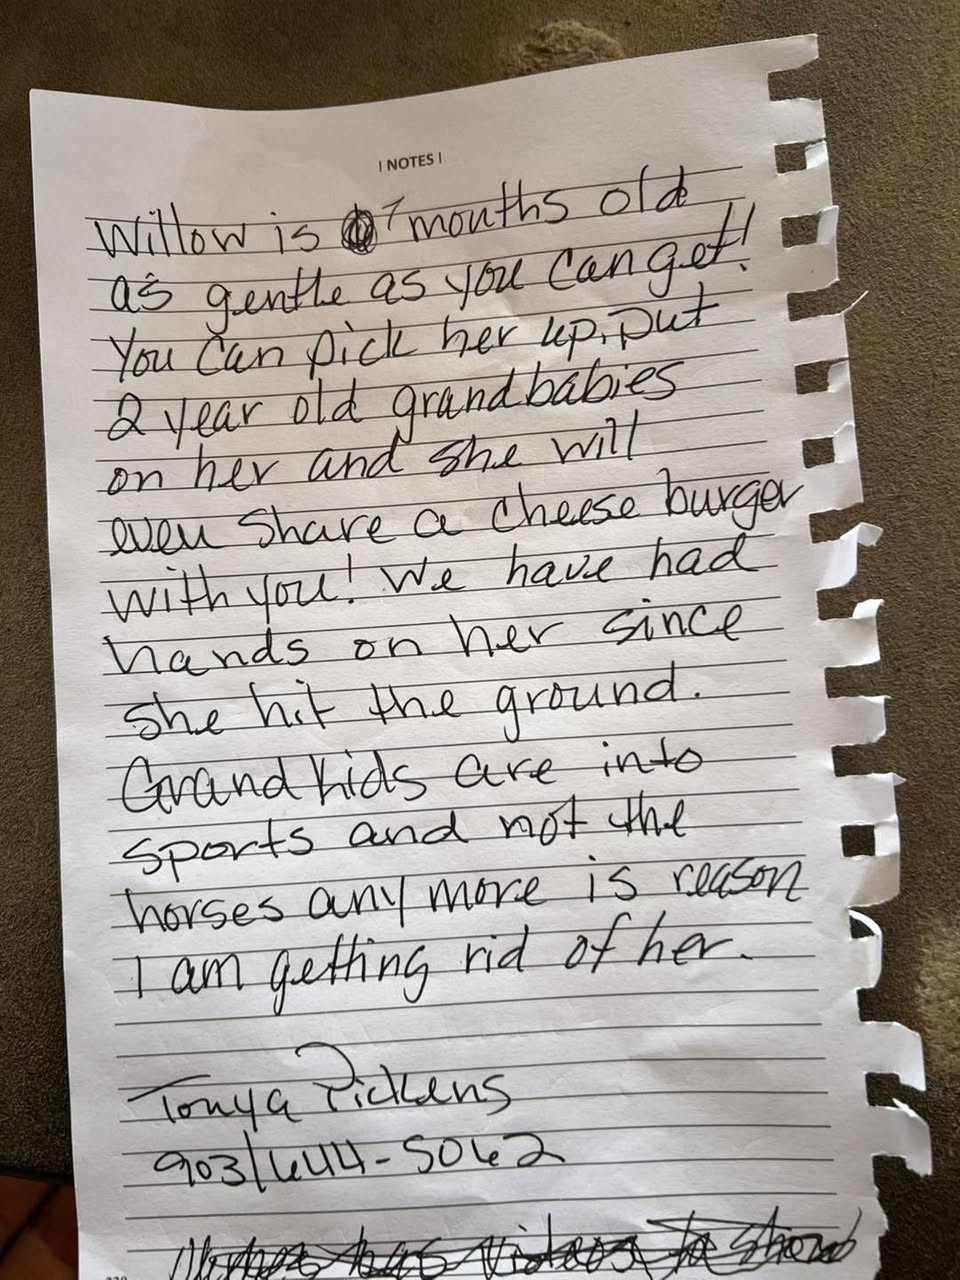 | NOTES |
Willow is 7 months old
as gentle as you can get!
You can pick her up, put
2 year old grandbabies
on her and she will
even share a cheese burger
with you! We have had
hands on her since
she hit the ground.
Grandkids are into
sports and not the
horses any more is reason
I am getting rid of her.
Tonya Pickens
903/644-5062
has videos to show